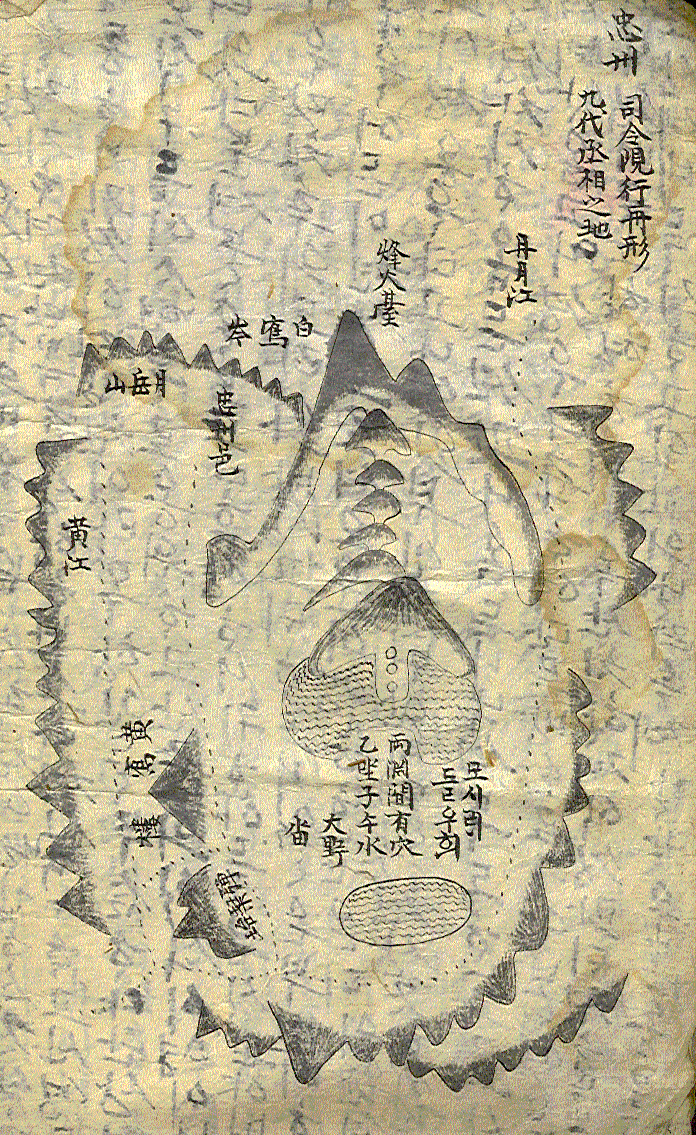 忠州
司令峴行舟形
九代丞相之地
丹月江
烽火臺
白鷹岑
月岳山
忠州邑
黃江
모시리
들우희
兩淵間有穴
乙坐子午水
大野
畓
彈琴坮